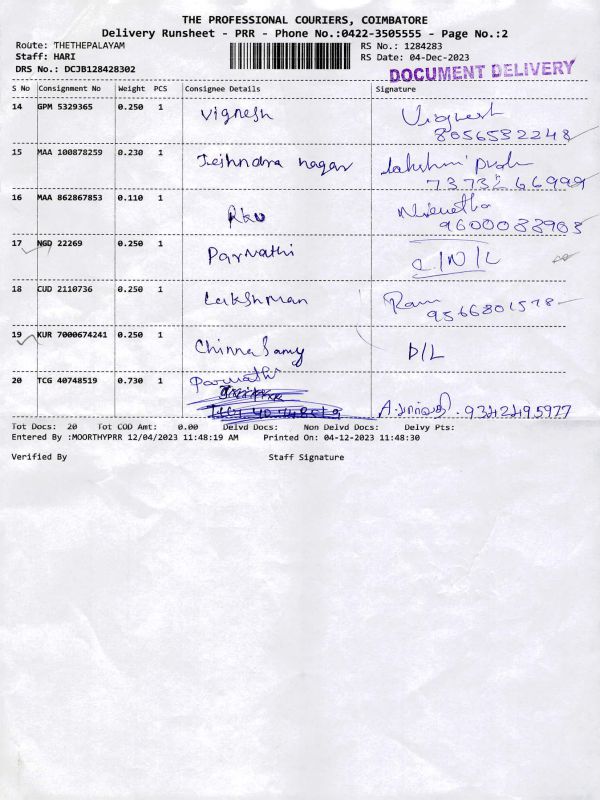 THE PROFESSIONAL COURIERS, COIMBATORE
Delivery Runsheet - PRR - Phone No.:0422-3505555 - Page No.:2
Route: THETHEPALAYAM RS No.: 1284283
Staff: HARI RS Date: 04-Dec-2023
DRS No.: DCJB128428302
DOCUMENT DELIVERY
S No Consignment No Weight PCS Consignee Details Signature
14 GPM 5329365 0.250 1 Vignesh Vignesh
8056532248
15 MAA 100878259 0.230 1 nagar Lakshmi
73732 66999
16 MAA 862867853 0.110 1 Rku
9600033903
17 NGD 22269 0.250 1 Parvathi
18 CUD 2110736 0.250 1 Lakshman Ram
9566801578
19 KUR 7000674241 0.250 1 Chinna Samy D/L
20 TCG 40748519 0.730 1 Parvathi
9342495977
Tot Docs: 20 Tot COD Amt: 0.00 Delvd Docs: Non Delvd Docs: Delvy Pts:
Entered By :MOORTHYPRR 12/04/2023 11:48:19 AM Printed On: 04-12-2023 11:48:30
Verified By Staff Signature